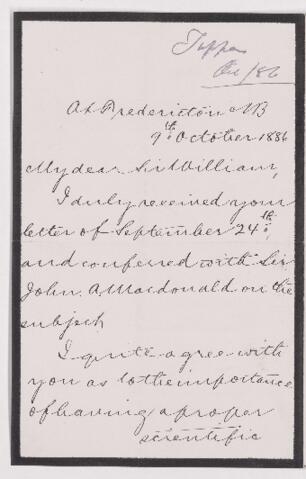 Tupper
Oct/86
At Fredericton NB
9th October 1886
My dear Sir William,
I duly received your
letter of September 24th,
and conferred with Sir
John A Macdonald on the
subject
I quite agree with
you as to the importance
of having a proper
scientific